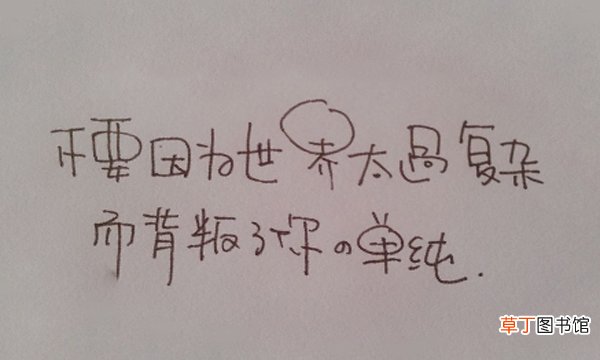 不要因为世界太過复杂
而背叛了你の单纯.
草丁图书馆